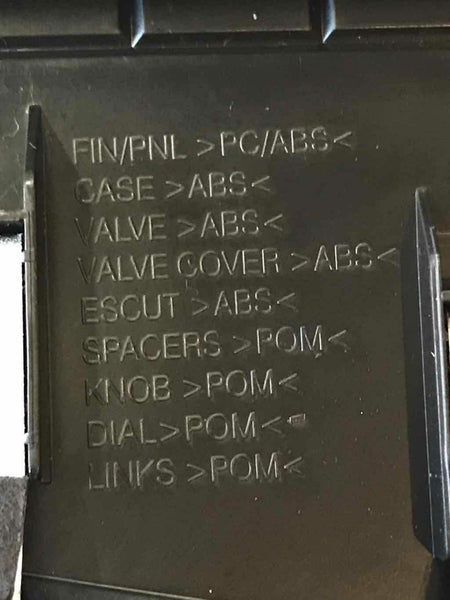 FIN/PNL >PC/ABS<
CASE >ABS<
VALVE >ABS<
VALVE COVER >ABS<
ESCUT >ABS<
SPACERS >POM<
KNOB >POM<
DIAL>POM<
LINKS >POM<